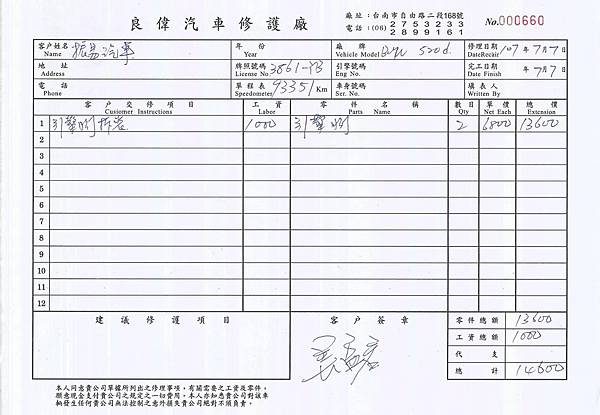 良偉汽車修護廠
廠址：台南市自由路二段168號
電話：(06) 2753233
2899161
No.000660
客戶姓名 Name 振易汽車
年份 Year
廠牌 Vehicle Model 520d.
修理日期 DateRecair 107年7月7日
地址 Address
牌照號碼 License No 3561-YB
引擎號碼 Eng No.
完工日期 Date Finish 年7月7日
電話 Phone
單程表 Speedometer 93351 Km
車身號碼 Ser. No.
填表人 Written By
客戶交修項目 Customer Instructions
工資 Labor
零件名稱 Parts Name
數目 Qty
單價 Net Each
總價 Extension
1 引擎 1000 引擎 2 6800 13600
2
3
4
5
6
7
8
9
10
11
12
建議修護項目
客戶簽章
零件總額 13600
工資總額 1000
代支
總計 14600
本人同意貴公司單據所列出之修理事項，有關需要之工資及零件，
願意現金支付貴公司之規定之一切費用。本人亦知悉貴公司對該車
輛發生任何貴公司無法控制之意外損失貴公司絕對不須負責。